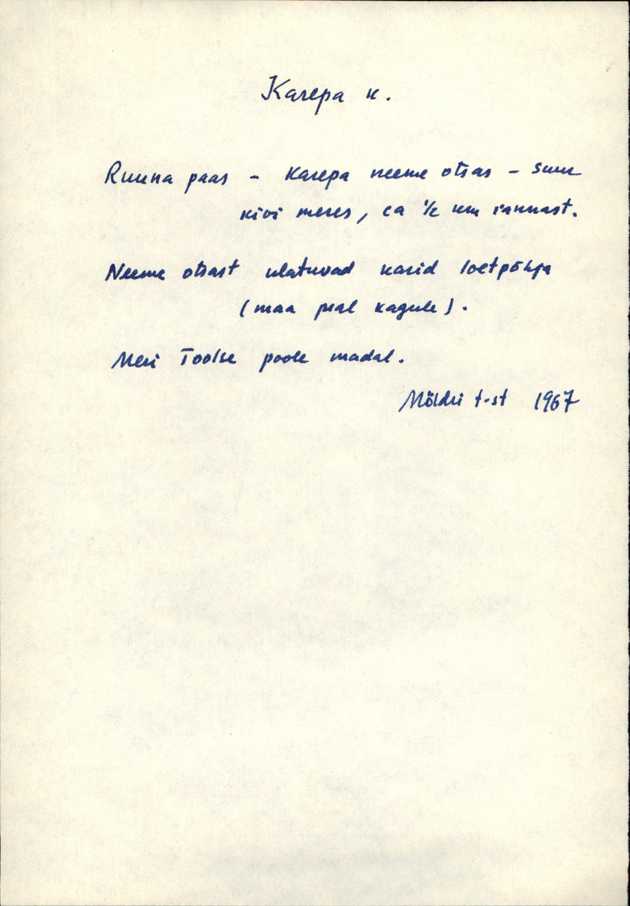 Karepa k.
Ruuna paas - Karepa neeme otsas - suur
kivi meres, ca ½ km rannast.
Neeme otsast ulatuvad karid loetpõhja
(maa peal kagule).
Meri Toolse poole madal.
Möldri t-st 1967